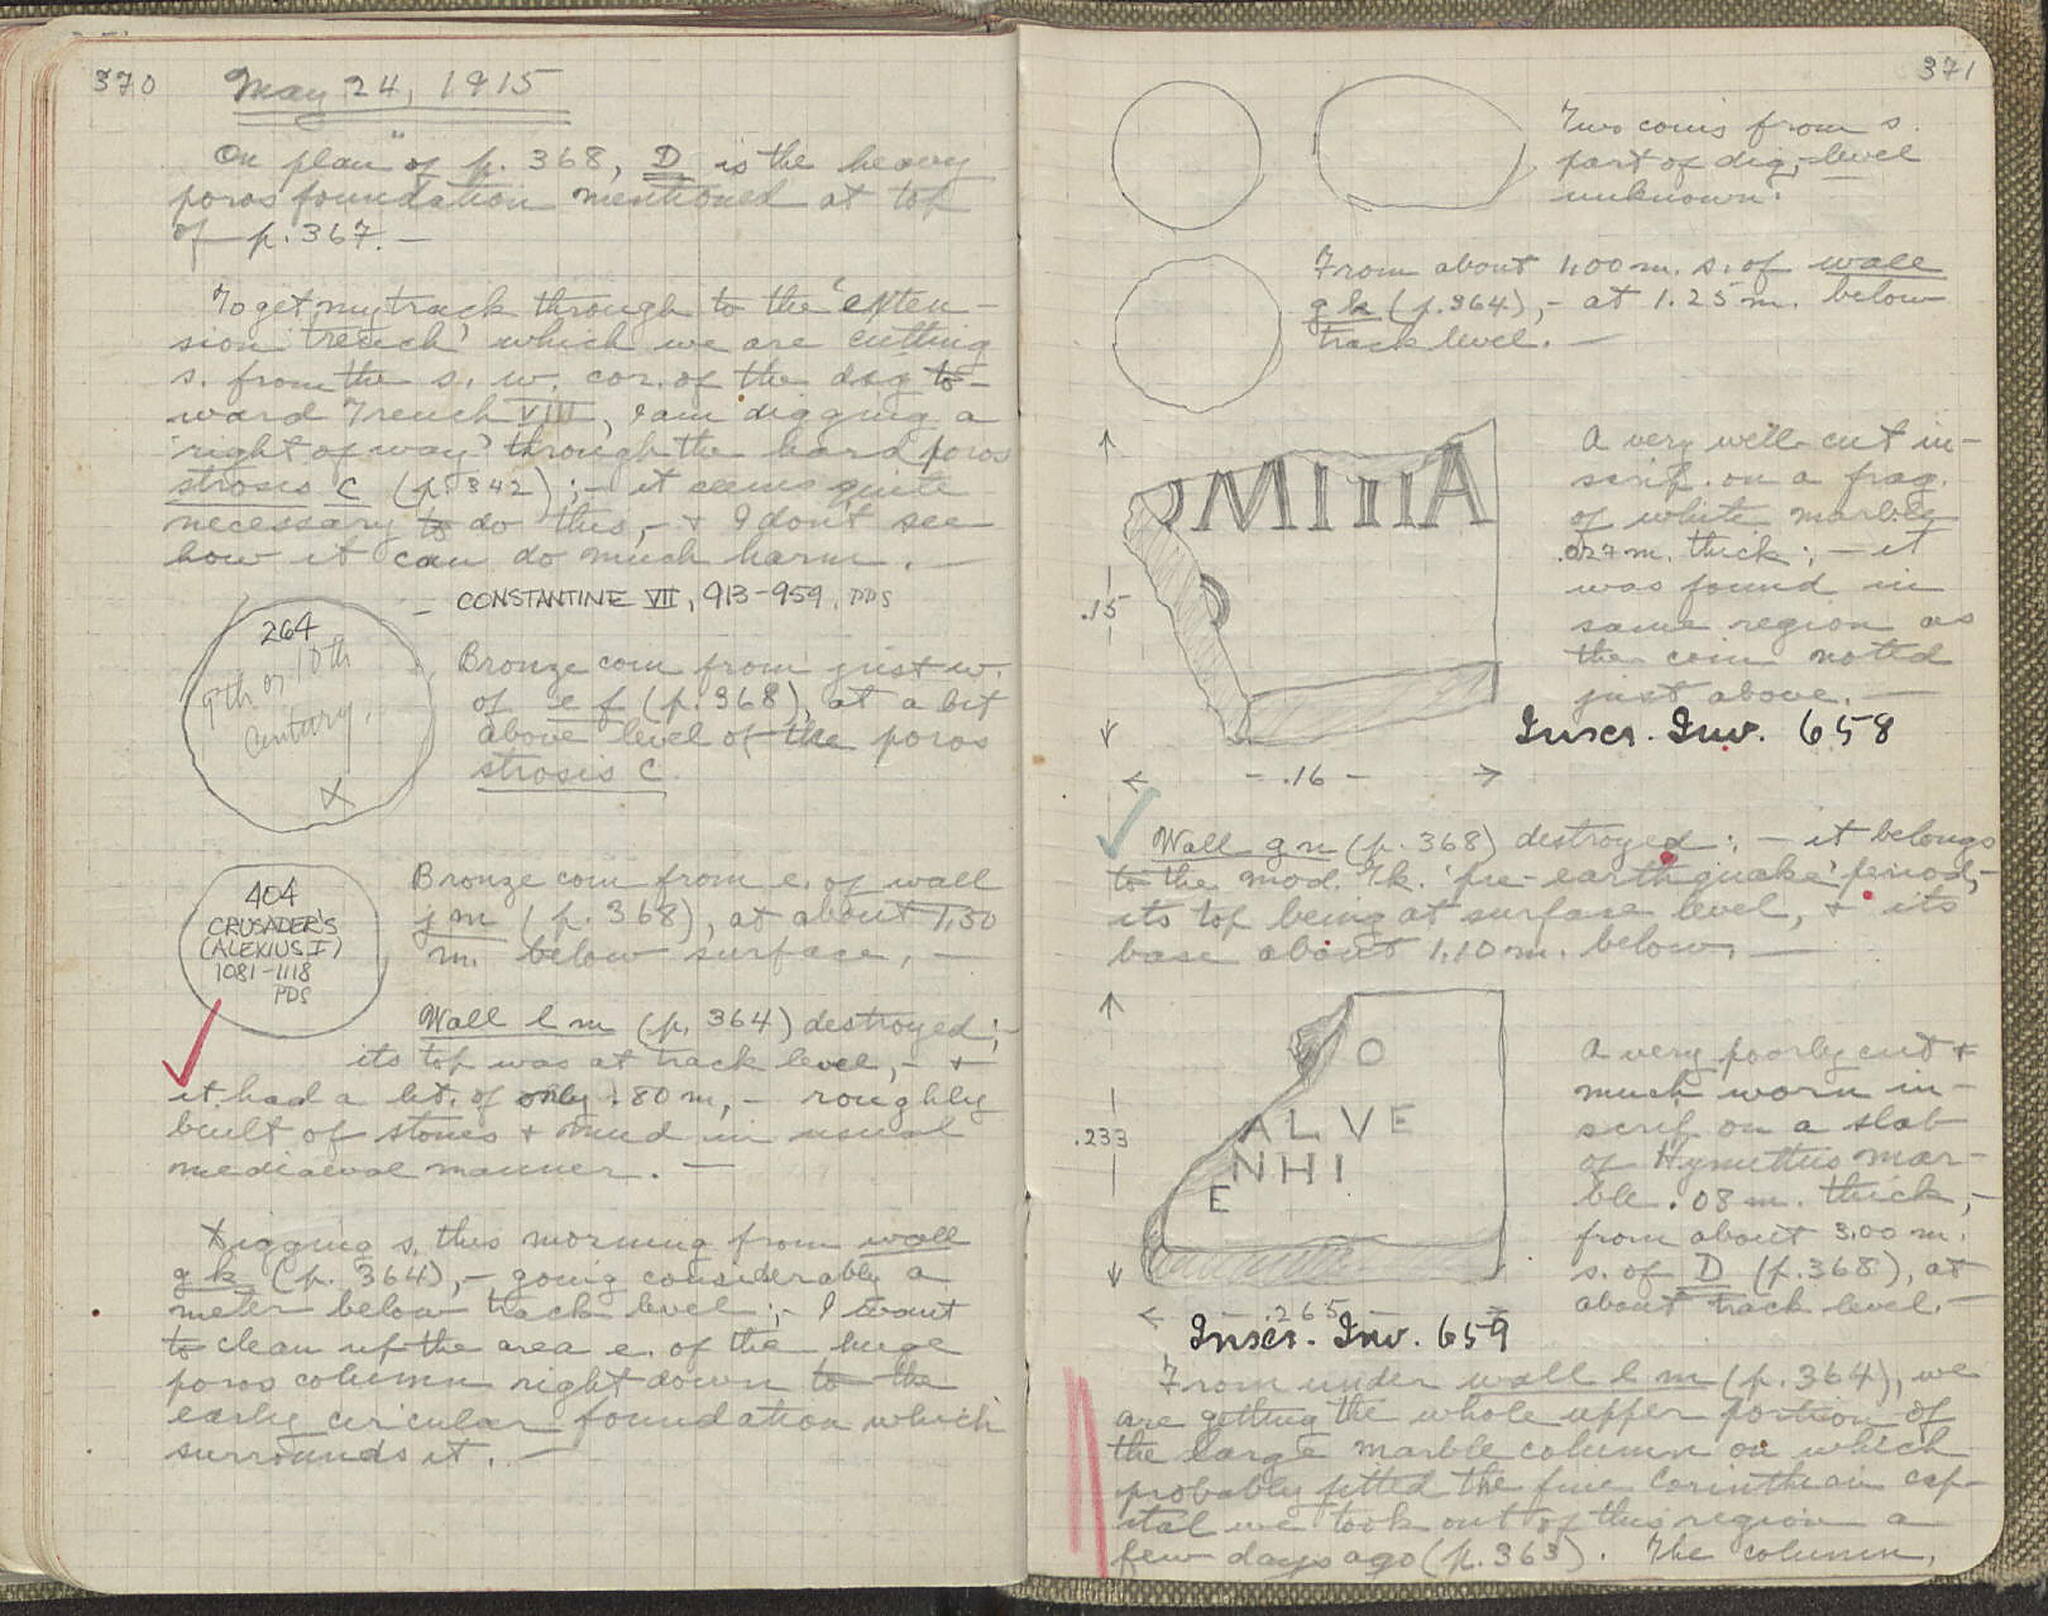 370
May 24, 1915
On plan of p. 368, D is the heavy
poros foundation mentioned at top
of p. 367. —
To get my track through to the 'exten-
sion trench' which we are cutting
s. from the s. w. cor. of the dig to-
ward Trench VIII, I am digging a
'right of way' through the hard poros
strosis c (p. 342) ; — it seems quite
necessary to do this, — + I don't see
how it can do much harm. —
— CONSTANTINE VII, 913-959, PDS
264
9th or 10th
Century.
X
Bronze coin from just w.
of e f (p. 368), at a bit
above level of the poros
strosis C.
404
CRUSADER'S
(ALEXIUS I)
1081-1118
PDS
Bronze coin from e. of wall
j m (p. 368), at about 1.50
m. below surface. —
Wall l m (p. 364) destroyed ; —
its top was at track level, — +
it had a ht. of only .80 m, — roughly
built of stones + mud in usual
mediaeval manner. —
Digging s. this morning from wall
g k (p. 364), — going considerably a
meter below track level ; — I want
to clean up the area e. of the huge
poros column right down to the
early circular foundation which
surrounds it. —
371
Two coins from s.
part of dig, — level
unknown.
From about 1.00 m. s. of wall
g k (p. 364), — at 1.25 m. below
track level. —
MIIIIA
.15
— .16 —
A very well cut in-
scrip. on a frag.
of white marble
.027 m. thick ; — it
was found in
same region as
the coin noted
just above. —
Inscr. Inv. 658
Wall g n (p. 368) destroyed ; — it belongs
to the mod. Gk. 'pre-earthquake' period, —
its top being at surface level, + its
base about 1.10 m. below. —
O
ALVE
NHI
E
.233
— .265 —
A very poorly cut +
much worn in-
scrip. on a slab
of Hymettus mar-
ble .08 m. thick, —
from about 3.00 m.
s. of D (p. 368), at
about track level. —
Inscr. Inv. 659
From under wall l m (p. 364), we
are getting the whole upper portion of
the large marble column on which
probably fitted the fine Corinthian cap-
ital we took out of this region a
few days ago (p. 363). The column,